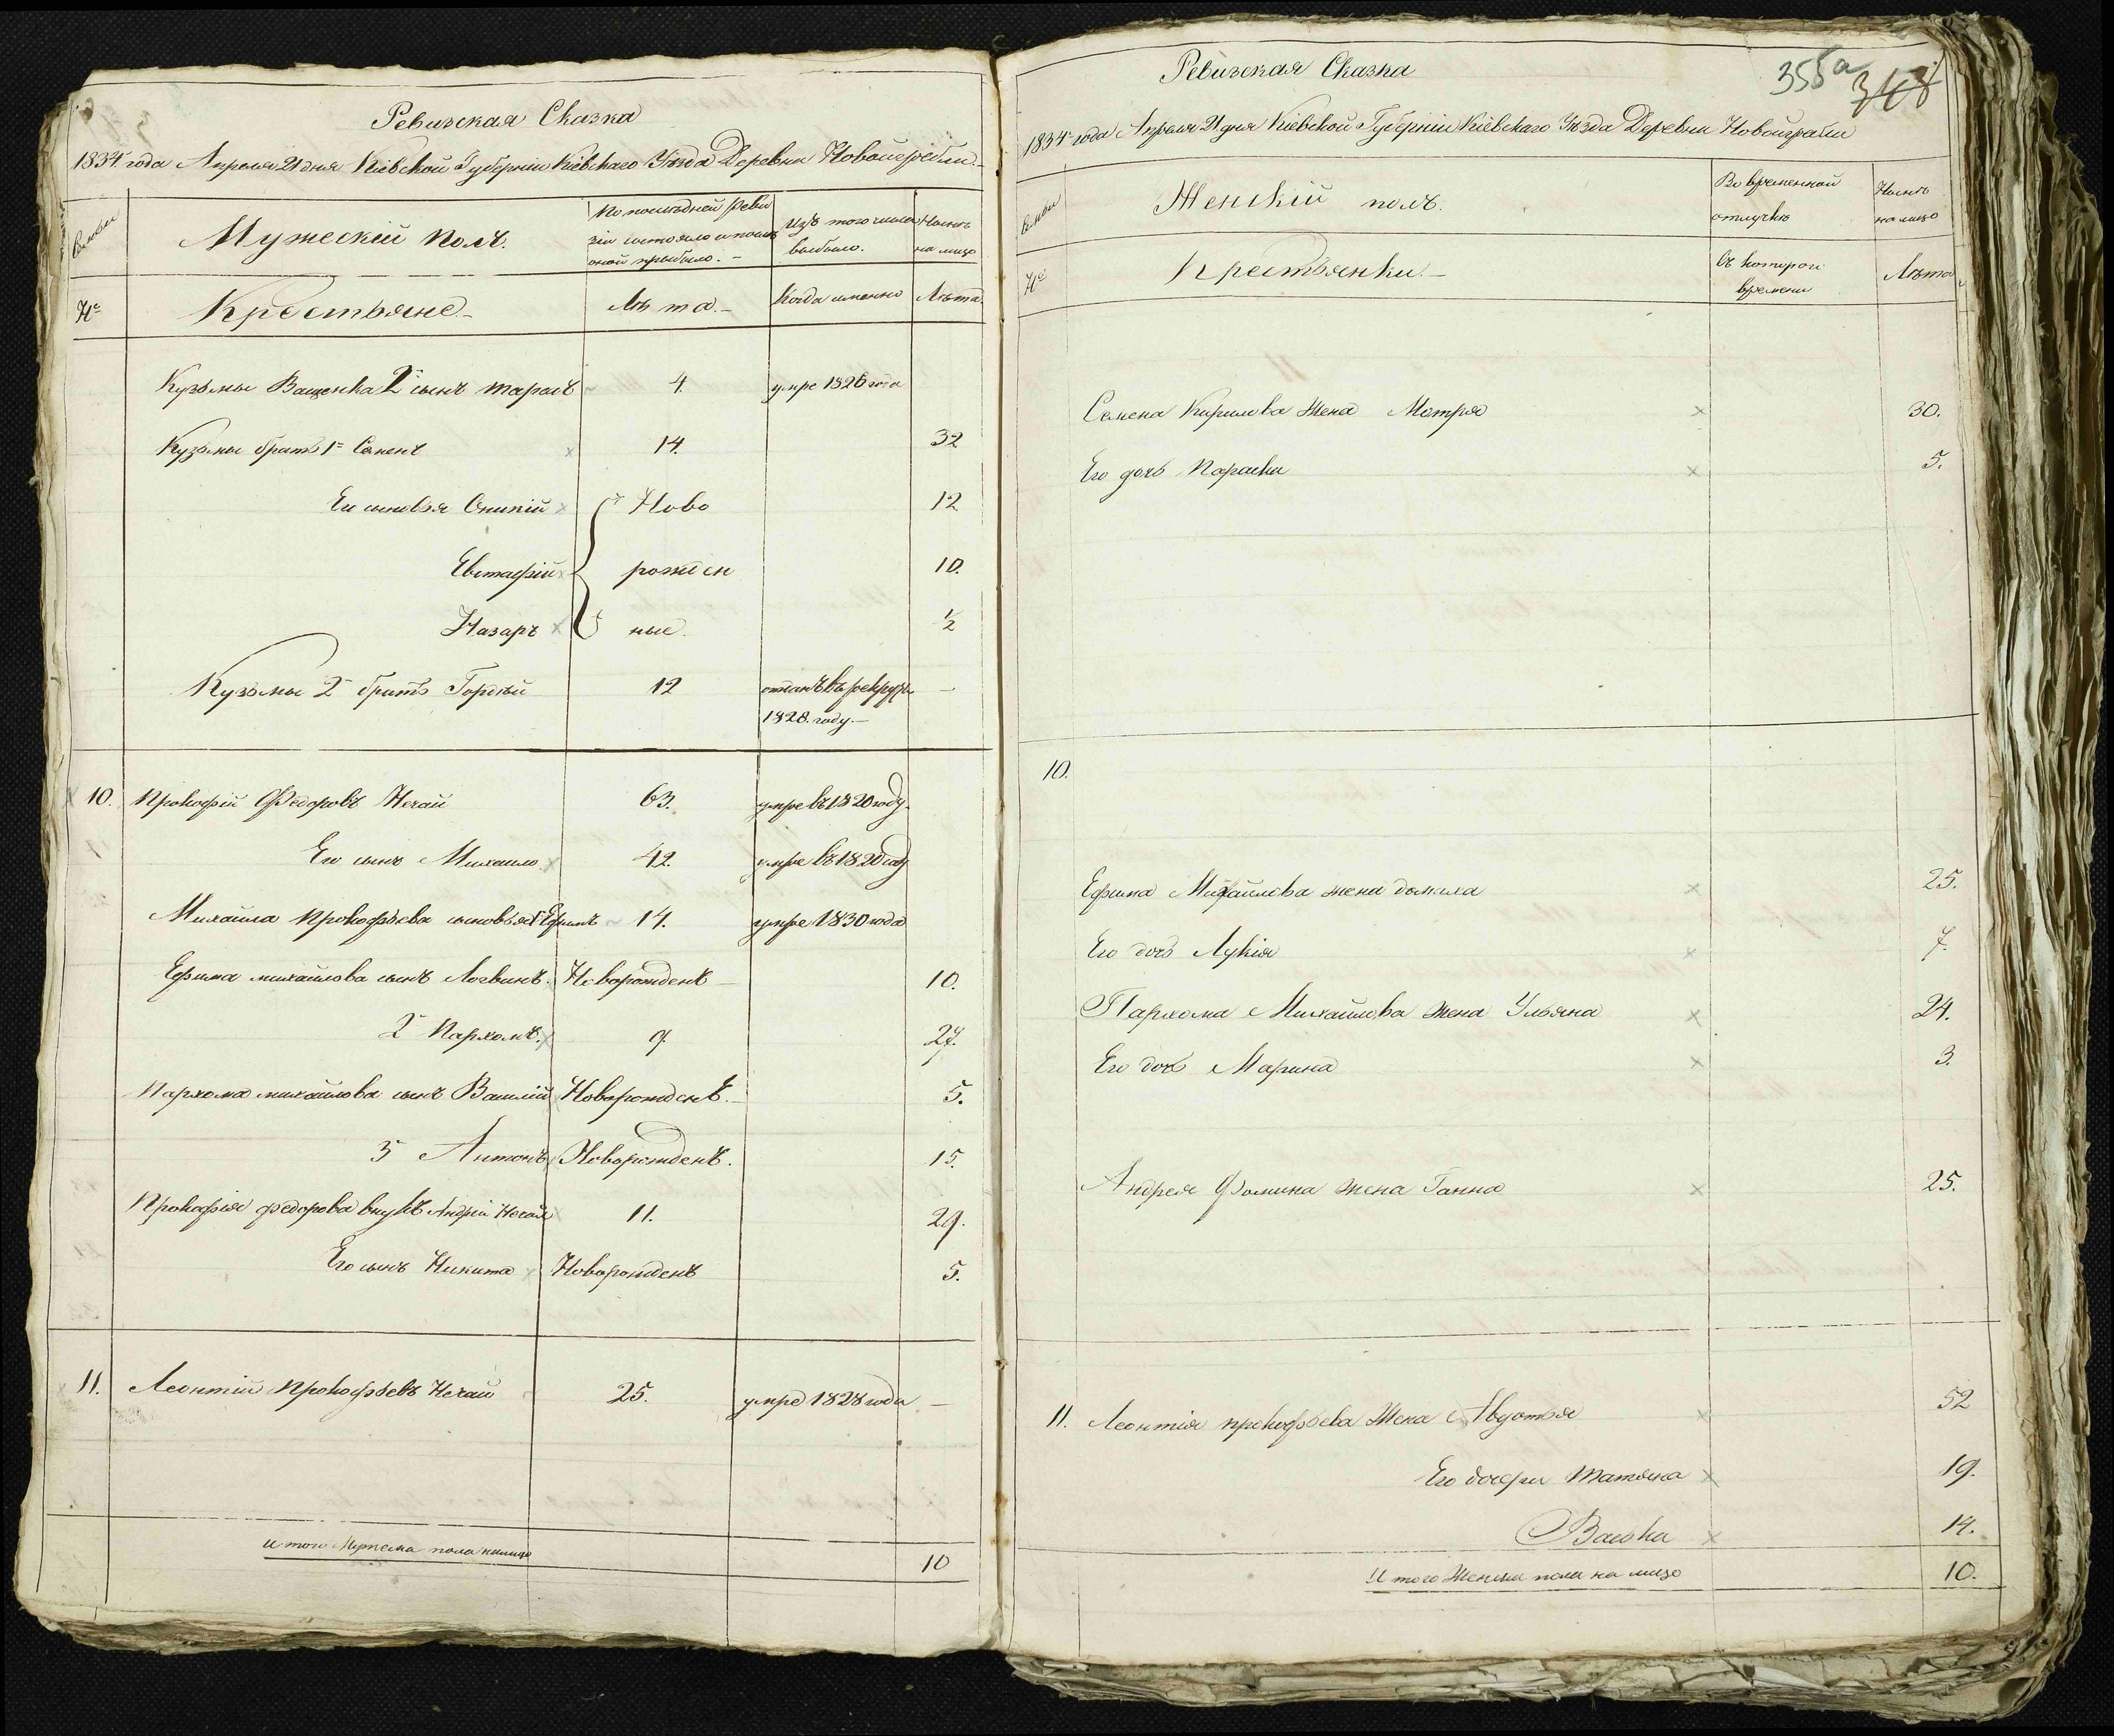 Ревизская Сказка
1834 года Апреля 21 дня Кіевской Губерніи Кіевскаго Уезда Деревни Новойгребли
Семьи
Мужескій полъ.
По последней реви
зіи состояло и после
оной прыбыло. –
Изъ того числа
выбыло.
Ныне
на лицо
№
Крестьяне. –
Лѣта. –
Когда именно
Лѣта.
Кузьмы Ващенка 2 сынъ Тарасъ 4. умре 1826 года
Кузьмы братъ 1 Семенъ 14. 32
Ево сыновья Онипій Ново 12
Евстафій рожден 10.
Назаръ ные. ½
Кузьмы 2 братъ Гордѣй 12 отданъ въ рекруты –
1828. году. –
10. Прокофій Федоровъ Нечай 63. умре въ 1820 году.
Его сынъ Михайло 42. умре въ 1820 году
Михайла Прокофьева сыновья 1 Ефимъ 14. умре 1830 года
Ефима михайлова сынъ Логвинъ. Новорожденъ 10.
2 Пархомъ. 9. 27.
Пархома михайлова сынъ Василій Новорожденъ. 5.
3 Антонъ Новорожденъ. 15.
Прокофія федорова внукъ Андрій Нечай 11. 29.
Его сынъ Никита Новорожденъ 5.
11. Леонтій Прокофьевъ Нечай 25. умре 1828 года –
И того Мужеска пола налицо 10
355а
348
Ревизская Сказка
1834 года Апреля 21 дня Кіевской Губерніи Кіевскаго Уезда Деревни Новойгребли
Семьи
Женскій полъ.
Во временной
отлучке
Ныне
на лицо
№
Крестьянки. –
съ которого
времени
Лѣта
Семена Кирилова жена Мотря 30.
Его дочь Параска 5.
10.
Ефима Михайлова жена Домаха 25.
Его дочь Лукія 7.
Пархома Михайлова жена Ульяна 24.
Его дочь Марина 3.
Андрея Фомина жена Ганна 25.
11. Леонтія прокофьева Жена Авдотья 52
Его дочери Татяна 19.
Васька 14.
И того Женска пола на лицо 10.